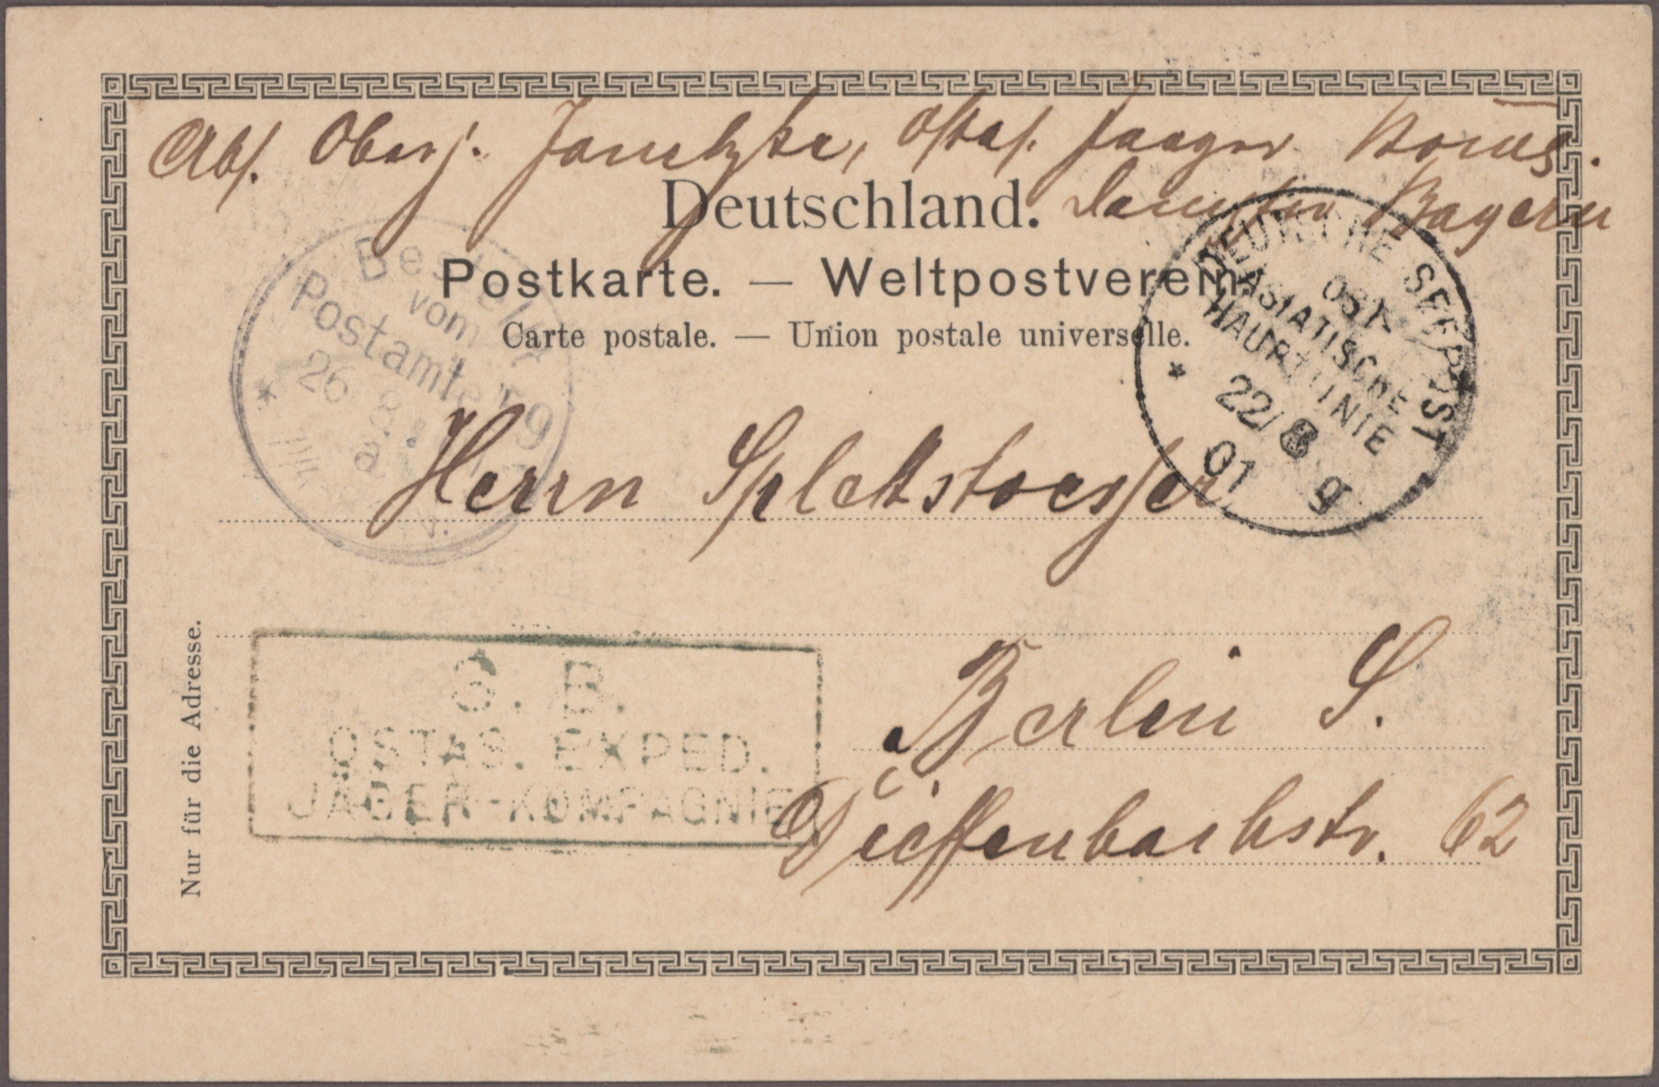 Abs. Oberj. Janetzke, Ostas. Jaeger Komp.
Deutschland. Dampfer Bayern
Postkarte. — Weltpostverein.
Carte postale. — Union postale universelle.
Bestellt
vom
Postamte 59
26. 8.
DEUTSCHE SEEPOST
OST-
ASIATISCHE
HAUPTLINIE
* 22/8
01 g
Herrn Splettstoesser
S. B.
OSTAS. EXPED.
JÄGER-KOMPAGNIE
Berlin S.
Dieffenbachstr. 62
Nur für die Adresse.